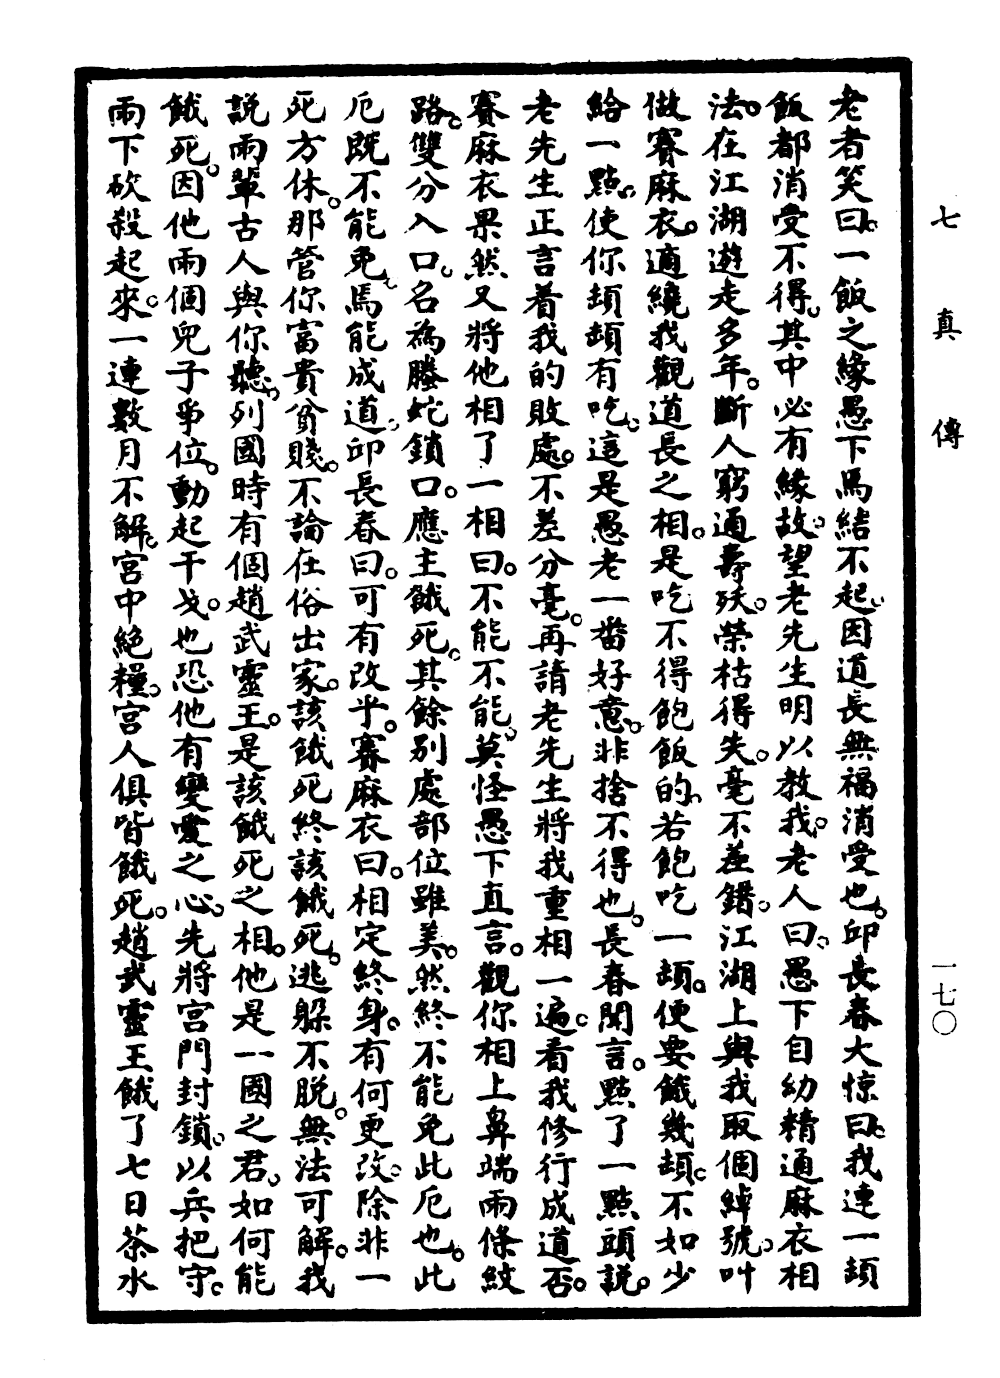 七真傳
一七〇
老者笑曰。一飯之緣愚下馬結不起。因道長無福消受也。邱長春大惊曰。我連一頓
飯都消受不得。其中必有緣故。望老先生明以教我。老人曰。愚下自幼精通麻衣相
法。在江湖遊走多年。斷人窮通壽殀。榮枯得失。毫不差錯。江湖上與我取個綽號。叫
做賽麻衣。適纔我觀道長之相。是吃不得飽飯的。若飽吃一頓。便要餓幾頓。不如少
給一點。使你頓頓有吃。這是愚老一番好意。非捨不得也。長春聞言。點了一點頭說。
老先生正言着我的敗處。不差分毫。再請老先生將我重相一遍。看我修行成道否。
賽麻衣果然又將他相了一相曰。不能不能。莫怪愚下直言。觀你相上鼻端兩條紋
路。雙分入口。名為騰蛇鎖口。應主餓死。其餘別處部位雖美。然終不能免此厄也。此
厄既不能免。焉能成道。邱長春曰。可有改乎。賽麻衣曰。相定終身。有何更改。除非一
死方休。那管你富貴貧賤。不論在俗出家。該餓死終該餓死。逃躲不脫。無法可解。我
說兩輩古人與你聽。列國時有個趙武靈王。是該餓死之相。他是一國之君。如何能
餓死。因他兩個兒子爭位。動起干戈。也恐他有變愛之心。先將宮門封鎖。以兵把守。
兩下砍殺起來。一連數月不解。宮中絕糧。宮人俱皆餓死。趙武靈王餓了七日茶水